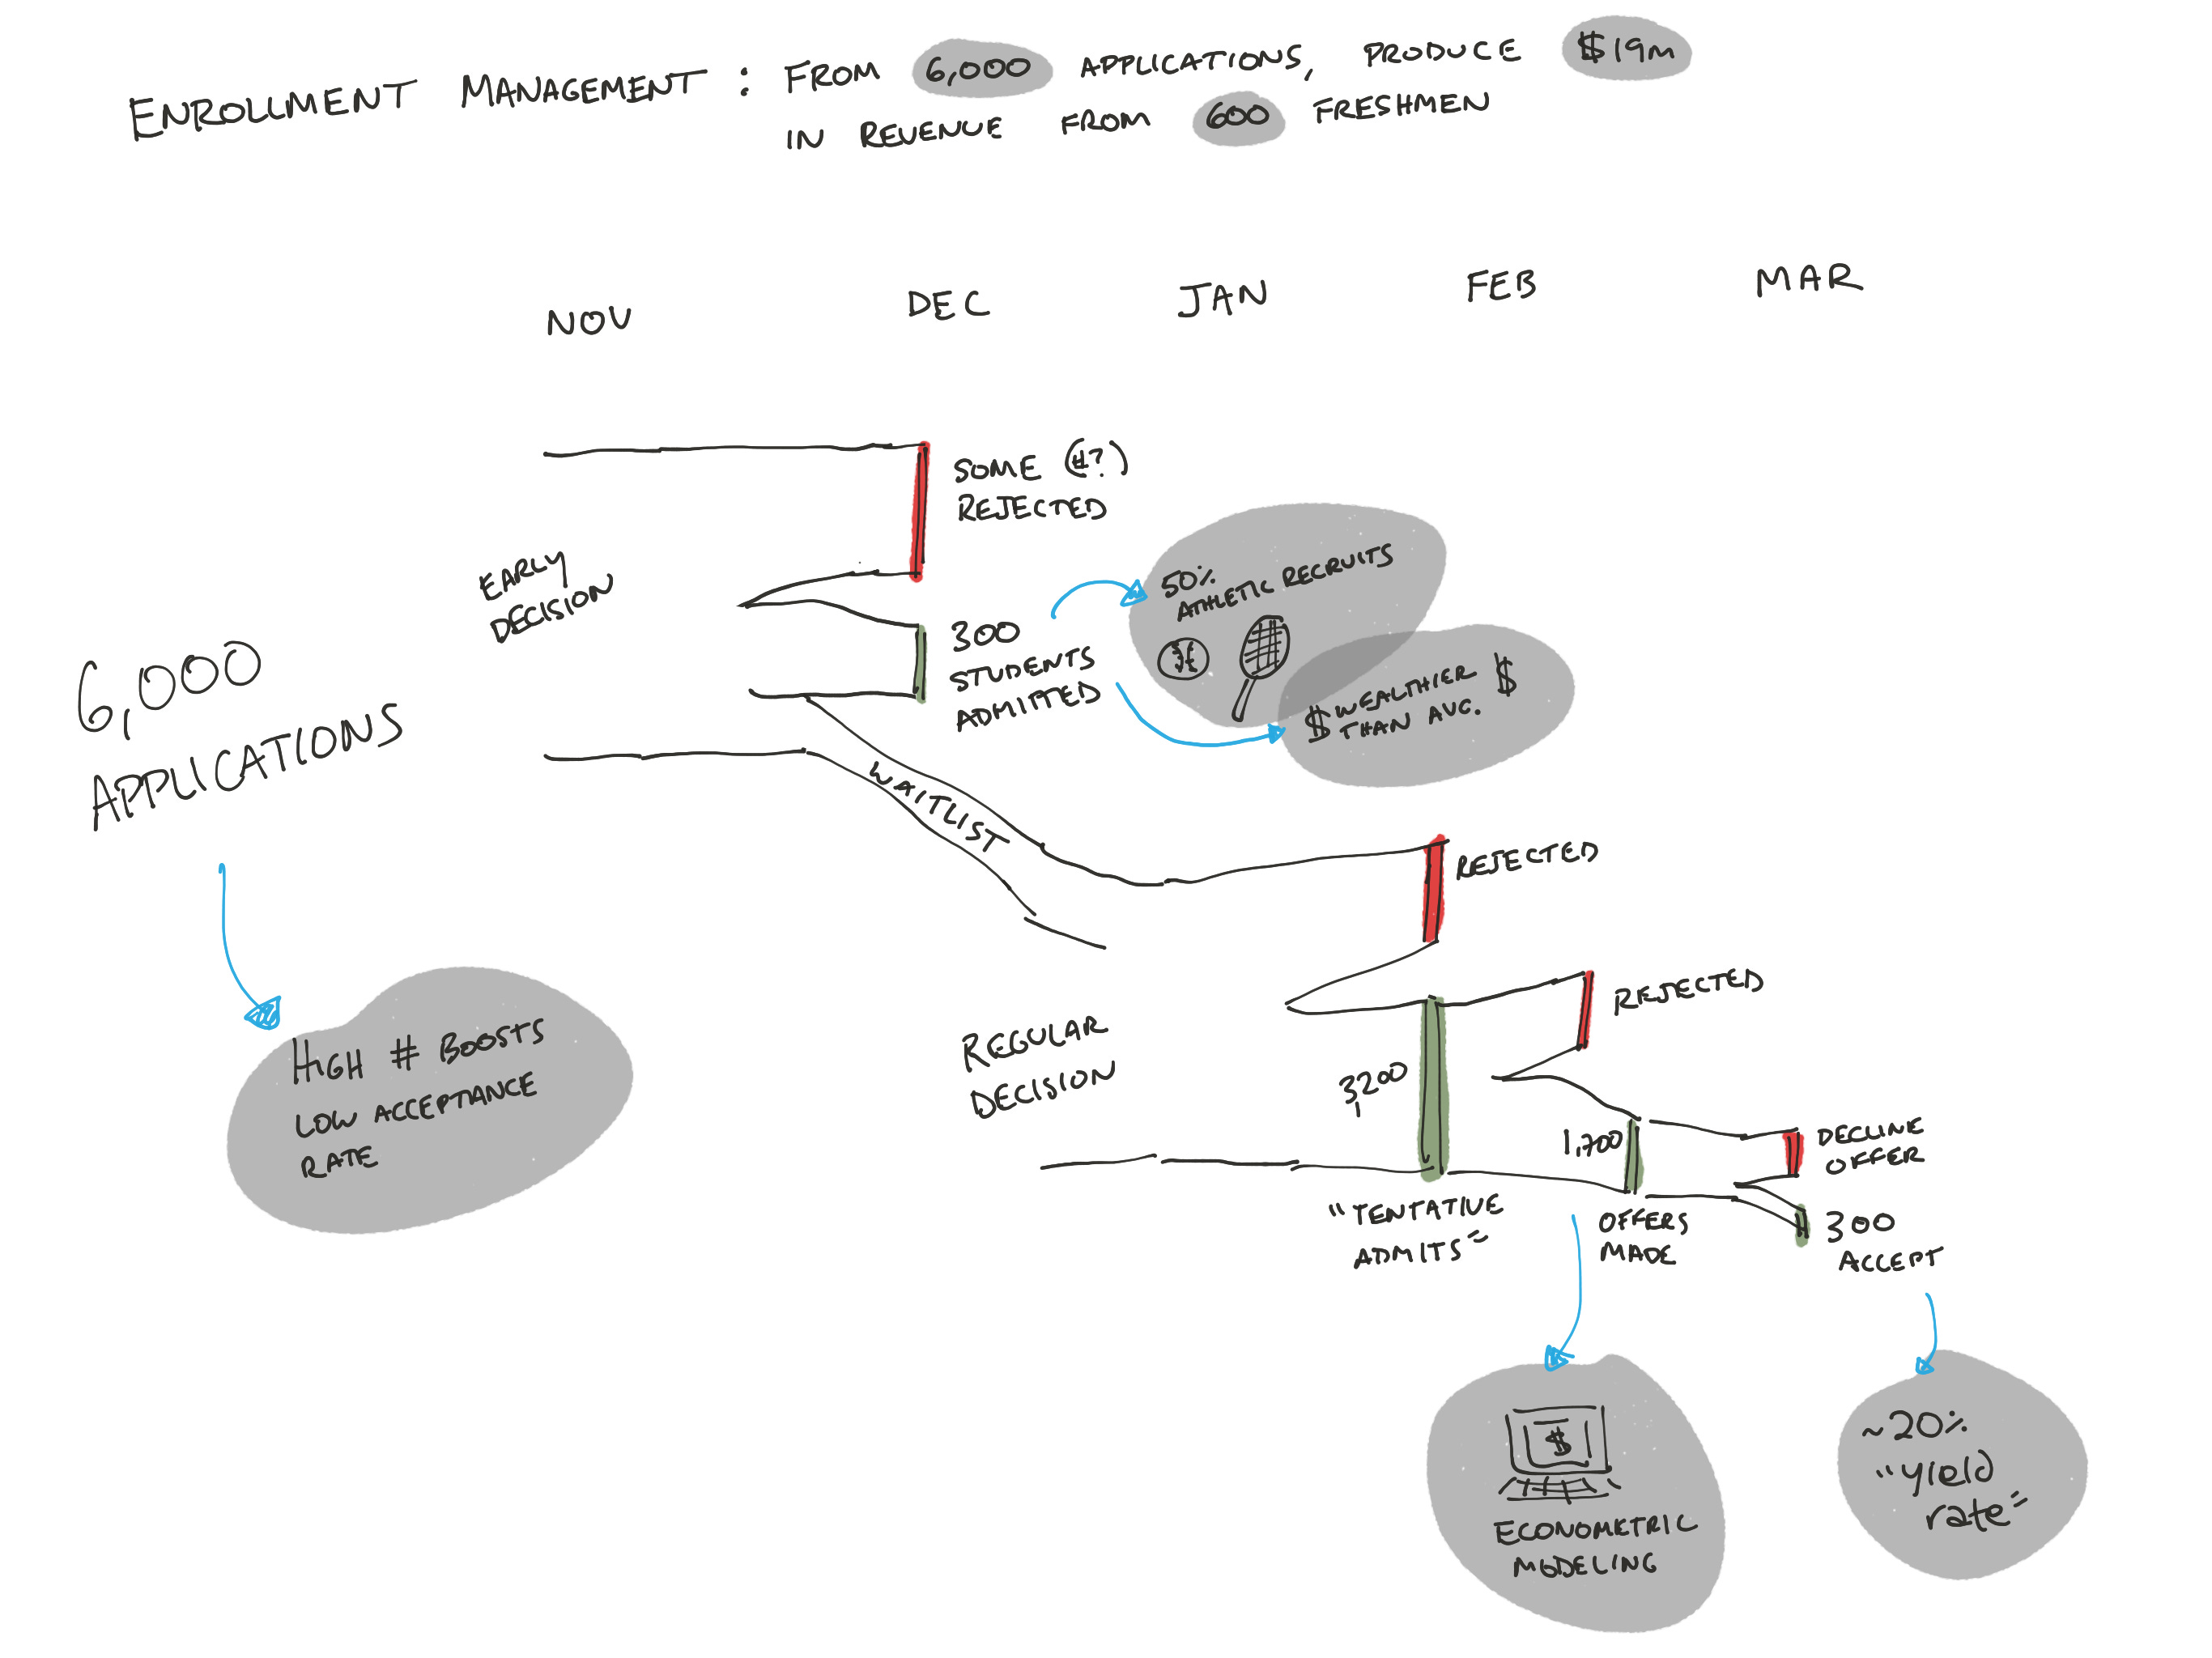 ENROLLMENT MANAGEMENT : FROM 6,000 APPLICATIONS, PRODUCE $19M
IN REVENUE FROM 600 FRESHMEN
NOV DEC JAN FEB MAR
6,000
APPLICATIONS
HIGH # BOOSTS
LOW ACCEPTANCE
RATE
EARLY
DECISION
SOME (#?)
REJECTED
300
STUDENTS
ADMITTED
50%
ATHLETIC RECRUITS
$ WEALTHIER $
THAN AVG.
WAITLIST
REGULAR
DECISION
REJECTED
3,200
"TENTATIVE
ADMITS"
REJECTED
1,700
OFFERS
MADE
DECLINE
OFFER
300
ACCEPT
$
ECONOMETRIC
MODELING
~20%
"yield
rate"